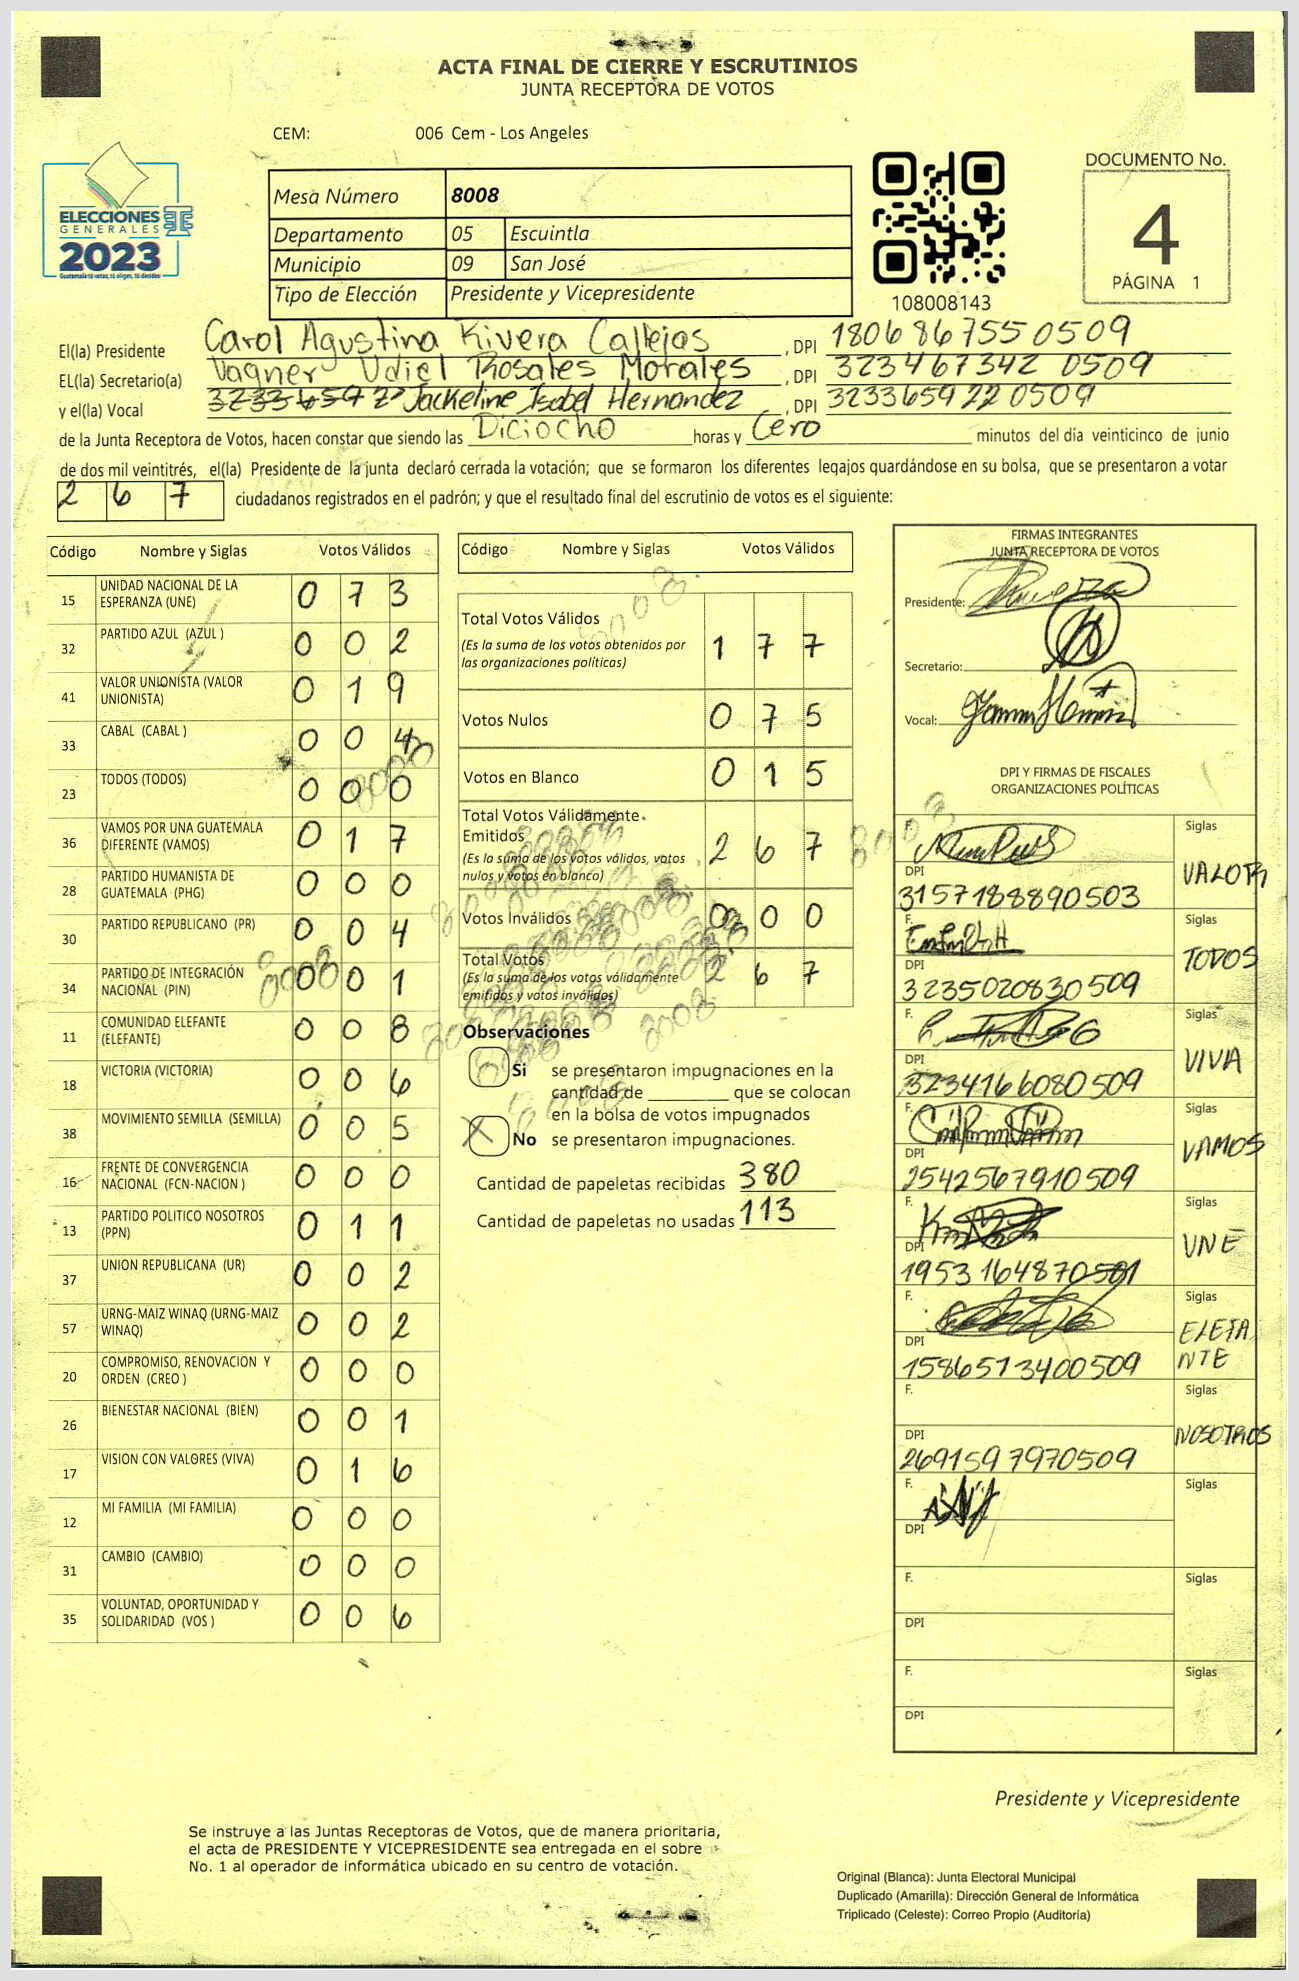 ACTA FINAL DE CIERRE Y ESCRUTINIOS
JUNTA RECEPTORA DE VOTOS
CEM: 006 Cem - Los Angeles
ELECCIONES
GENERALES
2023
Mesa Número 8008
Departamento 05 Escuintla
Municipio 09 San José
Tipo de Elección Presidente y Vicepresidente
108008143
DOCUMENTO No.
4
PÁGINA 1
El(la) Presidente Carol Agustina Rivera Callejas, DPI 1806867550509
EL(la) Secretario(a) Vagner Udiel Rosales Morales, DPI 323467342 0509
y el(la) Vocal Jackeline Isabel Hernandez, DPI 3233659220509
de la Junta Receptora de Votos, hacen constar que siendo las Diciocho horas y Cero minutos del día veinticinco de junio
de dos mil veintitrés, el(la) Presidente de la junta declaró cerrada la votación; que se formaron los diferentes legajos guardándose en su bolsa, que se presentaron a votar
2 6 7 ciudadanos registrados en el padrón; y que el resultado final del escrutinio de votos es el siguiente:
Código Nombre y Siglas Votos Válidos
15 UNIDAD NACIONAL DE LA ESPERANZA (UNE) 0 7 3
32 PARTIDO AZUL (AZUL ) 0 0 2
41 VALOR UNIONISTA (VALOR UNIONISTA) 0 1 9
33 CABAL (CABAL ) 0 0 4
23 TODOS (TODOS) 0 0 0
36 VAMOS POR UNA GUATEMALA DIFERENTE (VAMOS) 0 1 7
28 PARTIDO HUMANISTA DE GUATEMALA (PHG) 0 0 0
30 PARTIDO REPUBLICANO (PR) 0 0 4
34 PARTIDO DE INTEGRACIÓN NACIONAL (PIN) 0 0 1
11 COMUNIDAD ELEFANTE (ELEFANTE) 0 0 8
18 VICTORIA (VICTORIA) 0 0 6
38 MOVIMIENTO SEMILLA (SEMILLA) 0 0 5
16 FRENTE DE CONVERGENCIA NACIONAL (FCN-NACION ) 0 0 0
13 PARTIDO POLITICO NOSOTROS (PPN) 0 1 1
37 UNION REPUBLICANA (UR) 0 0 2
57 URNG-MAIZ WINAQ (URNG-MAIZ WINAQ) 0 0 2
20 COMPROMISO, RENOVACION Y ORDEN (CREO ) 0 0 0
26 BIENESTAR NACIONAL (BIEN) 0 0 1
17 VISION CON VALORES (VIVA) 0 1 6
12 MI FAMILIA (MI FAMILIA) 0 0 0
31 CAMBIO (CAMBIO) 0 0 0
35 VOLUNTAD, OPORTUNIDAD Y SOLIDARIDAD (VOS ) 0 0 6
Código Nombre y Siglas Votos Válidos
Total Votos Válidos
(Es la suma de los votos obtenidos por las organizaciones políticas) 1 7 7
Votos Nulos 0 7 5
Votos en Blanco 0 1 5
Total Votos Válidamente Emitidos
(Es la suma de los votos válidos, votos nulos y votos en blanco) 2 6 7
Votos Inválidos 0 0 0
Total Votos
(Es la suma de los votos válidamente emitidos y votos inválidos) 2 6 7
Observaciones
Si se presentaron impugnaciones en la
cantidad de ________ que se colocan
en la bolsa de votos impugnados
X No se presentaron impugnaciones.
Cantidad de papeletas recibidas 380
Cantidad de papeletas no usadas 113
FIRMAS INTEGRANTES
JUNTA RECEPTORA DE VOTOS
Presidente:
Secretario:
Vocal:
DPI Y FIRMAS DE FISCALES
ORGANIZACIONES POLÍTICAS
F. Siglas VALOR
DPI 3157188890503
F. Siglas TODOS
DPI 3235020830509
F. Siglas VIVA
DPI 3234166080509
F. Siglas VAMOS
DPI 2542567910509
F. Siglas UNE
DPI 1953164870501
F. Siglas ELEFANTE
DPI 1586513400509
F. Siglas NOSOTROS
DPI 2691597970509
F. Siglas
DPI
F. Siglas
DPI
F. Siglas
DPI
Presidente y Vicepresidente
Se instruye a las Juntas Receptoras de Votos, que de manera prioritaria,
el acta de PRESIDENTE Y VICEPRESIDENTE sea entregada en el sobre
No. 1 al operador de informática ubicado en su centro de votación.
Original (Blanca): Junta Electoral Municipal
Duplicado (Amarilla): Dirección General de Informática
Triplicado (Celeste): Correo Propio (Auditoría)